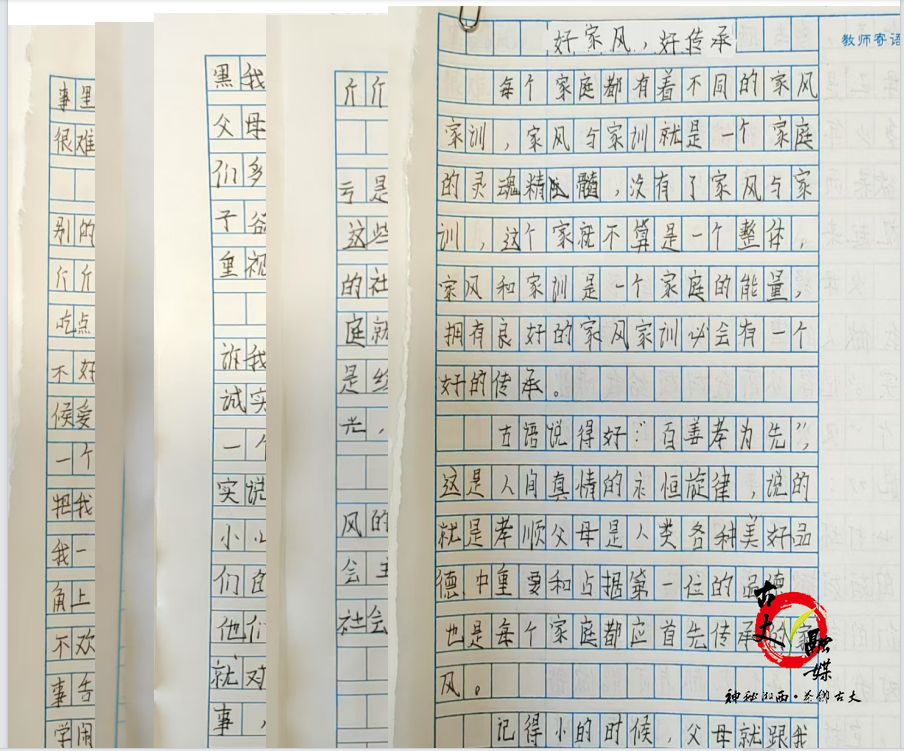 事里
很难
别的
斤斤
吃点
不好
候爱
一个
把我
我一
角上
不欢
事告
学闹
黑我
父母
们多
子谷
重视
诈我
诚实
一个
实说
小心
们的
他们
就对
事，
斤斤
亏是
这些
的社
庭就
是给
光，
风的
会主
社会
好家风，好传承
教师寄语
每个家庭都有着不同的家风
家训，家风与家训就是一个家庭
的灵魂精髓，没有了家风与家
训，这个家就不算是一个整体，
家风和家训是一个家庭的能量，
拥有良好的家风家训必会有一个
好的传承。
古语说得好："百善孝为先"，
这是人间真情的永恒旋律，说的
就是孝顺父母是人类各种美好品
德中重要和占据第一位的品德，
也是每个家庭都应首先传承的家
风。
记得小的时候，父母就跟我
古丈融媒
神秘湘西·茶乡古丈